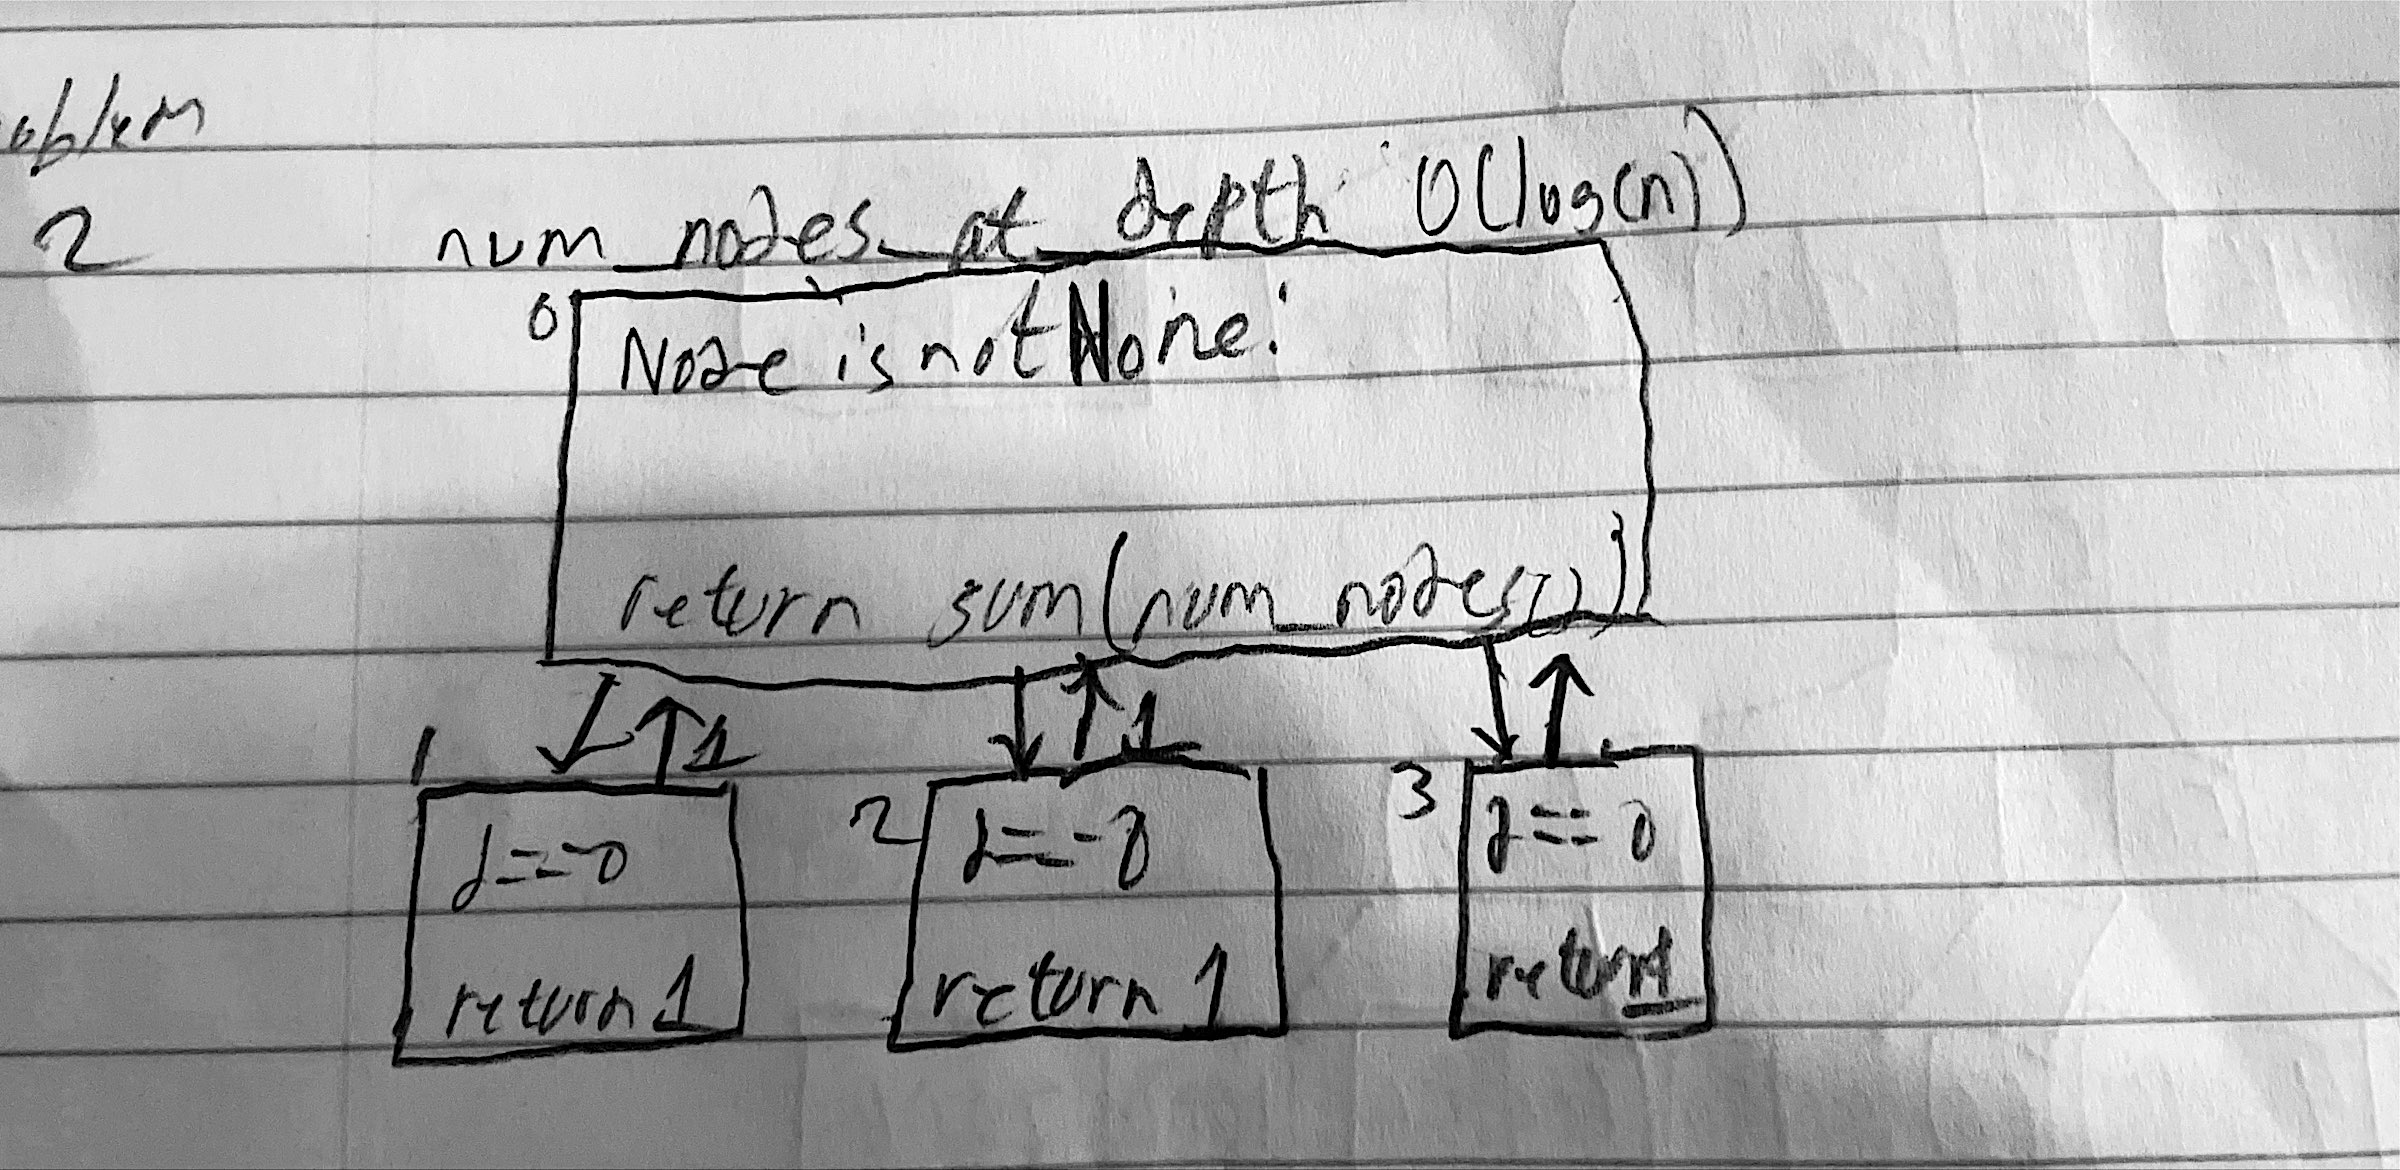 oblem
2
num_nodes_at_depth O(log(n))
0
Node is not None:
return sum(num_nodes())
1 1 1
2 3
d==0 d==0 d==0
return 1 return 1 return 1